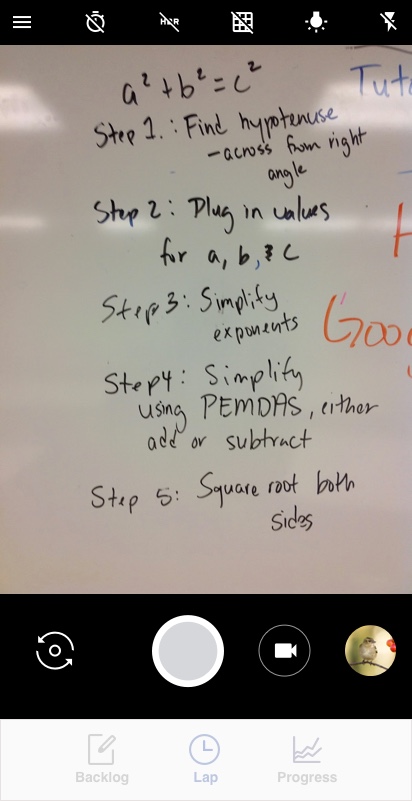 HDR
a² + b² = c²
Tuto
Step 1. : Find hypotenuse
- across from right
angle
Step 2 : Plug in values
for a, b, & c
H
Step 3 : Simplify
exponents
Goo
Step 4 : Simplify
using PEMDAS, either
add or subtract
Step 5: Square root both
sides
Backlog
Lap
Progress